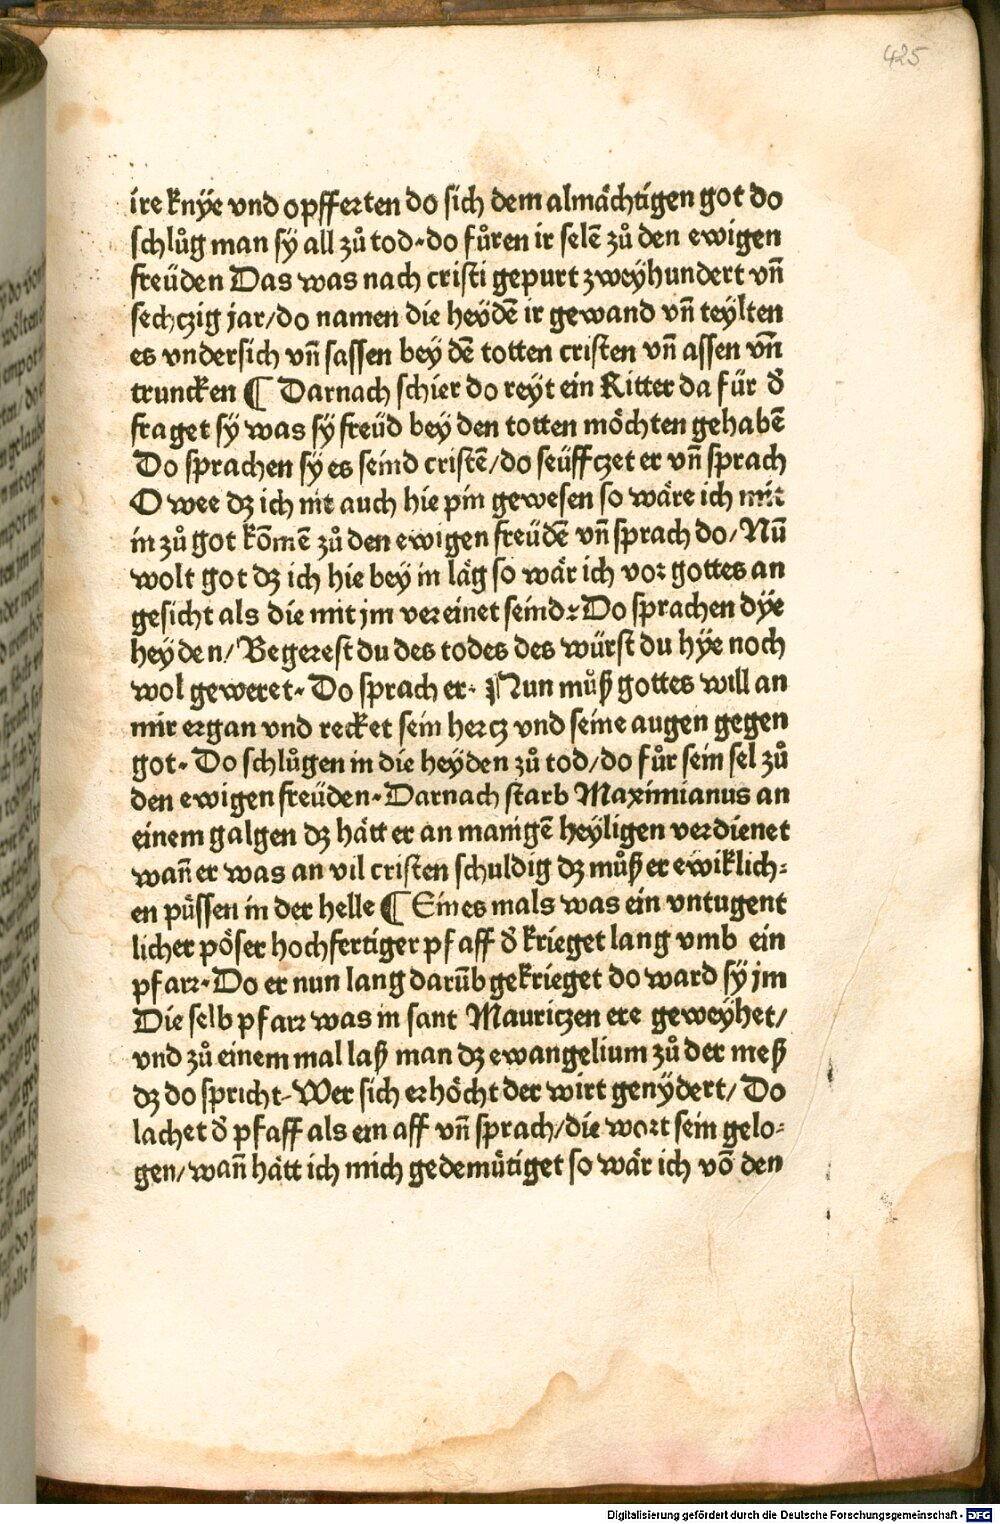 425
ire knÿe vnd opfferten do sich dem almächtigen got do
schlůg man sÿ all zů tod. do fůren ir selē zů den ewigen
freüden Das was nach cristi gepurt zweÿhundert vn̄
sechczig jar/do namen die heÿdē ir gewand vn̄ teÿlten
es vndersich vn̄ sassen beÿ dē totten cristen vn̄ assen vn̄
truncken ¶ Darnach schier do reÿt ein Ritter da für d̾
fraget sÿ was sÿ freüd beÿ den totten möchten gehabē
Do sprachen sÿ es seind cristē/do seüffczet er vn̄ sprach
O wee dz ich nit auch hie pin gewesen so wäre ich mit
in zů got kōmē zů den ewigen freüdē vn̄ sprach do/Nū
wolt got dz ich hie beÿ in läg so wär ich vor gottes an
gesicht als die mit jm vereinet seind: Do sprachen dÿe
heÿden/Begerest du des todes des würst du hÿe noch
wol geweret. Do sprach er. Nun můß gottes will an
mir ergan vnd recket sein hercz vnd seine augen gegen
got. Do schlůgen in die heÿden zů tod/do fůr sein sel zů
den ewigen freüden. Darnach starb Maximianus an
einem galgen dz hätt er an manigē heÿligen verdienet
wan̄ er was an vil cristen schuldig dz můß er ewiklich=
en püssen in der helle ¶ Eines mals was ein vntugent
licher pöser hochfertiger pfaff d̾ krieget lang vmb ein
pfarr. Do er nun lang darūb gekrieget do ward sÿ jm
Die selb pfarr was in sant Mauriczen ere geweÿhet/
vnd zů einem mal laß man dz ewangelium zů der meß
dz do spricht. Wer sich erhöcht der wirt genÿdert/Do
lachet d̾ pfaff als ein aff vn̄ sprach/die wort sein gelo=
gen/wan̄ hätt ich mich gedemütiget so wär ich vō den
Digitalisierung gefördert durch die Deutsche Forschungsgemeinschaft - DFG